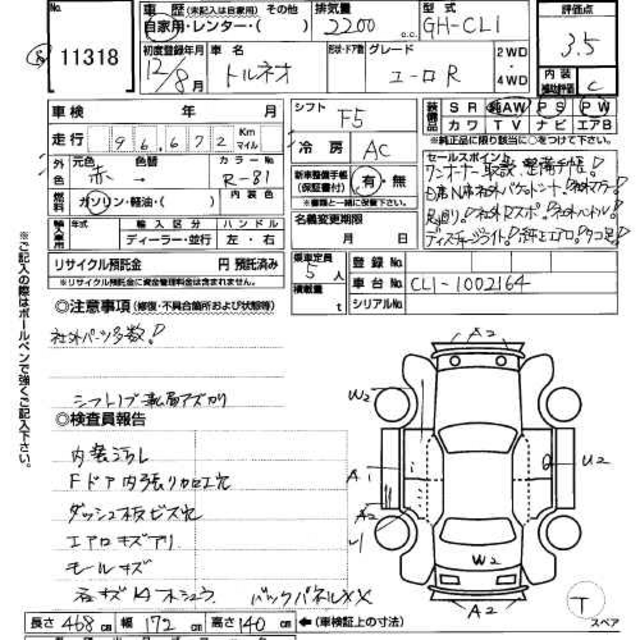 No.
11318
車歴 (未記入は自家用) その他
自家用・レンター・( )
排気量
2200 c.c.
型式
GH-CL1
評価点
3.5
内装
補助評価
C
初度登録年月
12/8月
車名
トルネオ
形状・ドア数
グレード
ユーロR
2WD
・
4WD
車検 年 月
走行 96,672 Km マイル
外色
元色 色替 カラーNo. 内装色
赤 → R-81
燃料
ガソリン・軽油・( )
輸入車用
年式
輸入区分
ハンドル
ディーラー・並行
左・右
リサイクル預託金 円 預託済み
※リサイクル預託金に資金管理料金は含まれません。
シフト
F5
冷房
AC
新車整備手帳
(保証書付)
有・無
※書類と一緒に保管下さい。
名義変更期限
月 日
乗車定員
5人
積載量
t
装備品
SR 純AW PS PW
カワ TV ナビ エアB
※純正品に限り該当に○をつけて下さい。
セールスポイント
ワンオーナー 取説、整備手帳!
ディスチャージライト! 純正エアロ! タコ足!
登録No.
車台No. CL1-1002164
シリアルNo.
◎注意事項 (修復・不具合箇所および状態等)
社外パーツ多数!
シフトノブ事務局アズカリ
◎検査員報告
内装汚レ
Fドア内張リ加工穴
ダッシュ板ビス穴
エアロキズアリ
モールキズ
バックパネルXX
A2
W2
A1
U2
A2
W2
A2
T
スペア
長さ 468 cm 幅 172 cm 高さ 140 cm ←(車検証上の寸法)
※ご記入の際はボールペンで強くご記入下さい。